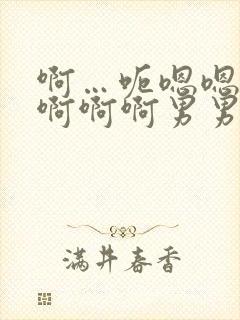 啊…呃嗯嗯
啊啊啊男男
满井春香